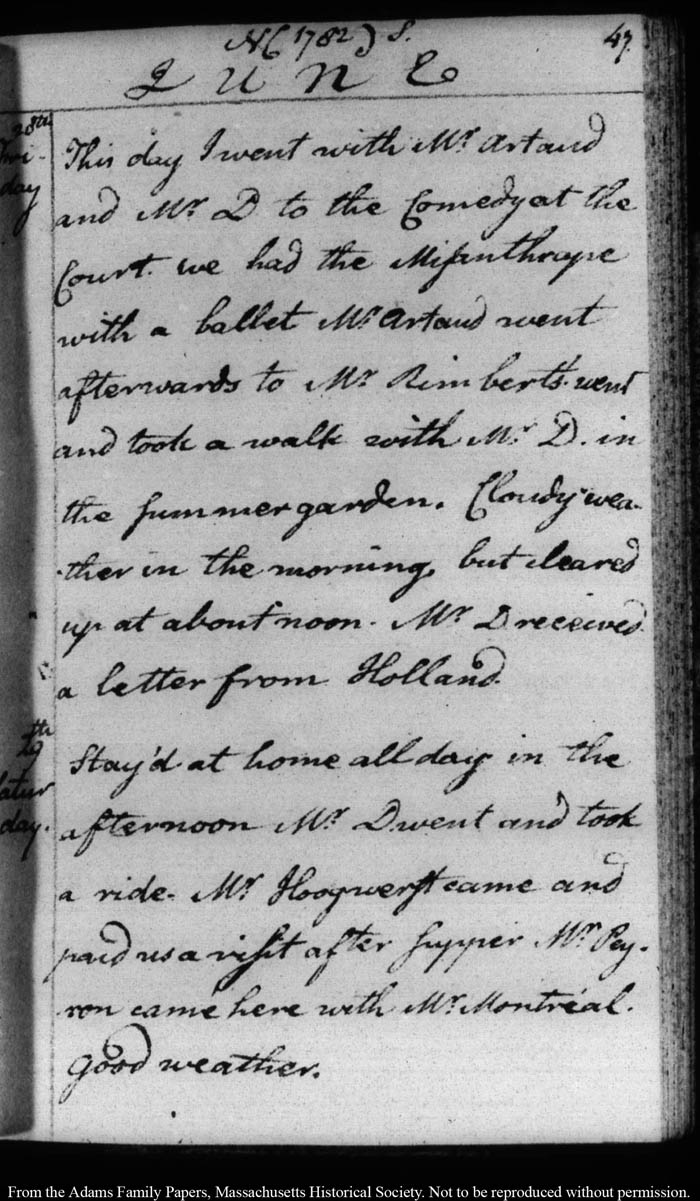 N( 1782 ) S. 47.
J U N E
28th
Fri-
day
This day I went with Mr. Artaud
and Mr. D to the Comedy at the
Court. we had the Misanthrope
with a ballet Mr. Artaud went
afterwards to Mr. Rimberts. went
and took a walk with Mr. D. in
the summer garden. Cloudy wea-
ther in the morning, but cleared
up at about noon. Mr. D received
a letter from Holland.
29th
Satur
day.
Stay'd at home all day in the
afternoon Mr. D went and took
a ride. Mr. Hoogwerft came and
paid us a visit after supper Mr. Pey-
ron came here with Mr. Montréal.
good weather.
From the Adams Family Papers, Massachusetts Historical Society. Not to be reproduced without permission.